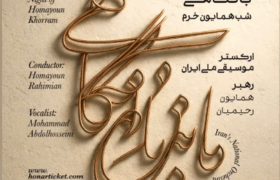 Night of
Homayoun
Khorram
شب همایون خرم
ارکستر
موسیقی ملی ایران
Conductor:
Homayoun
Rahimian
رهبر
همایون
رحیمیان
Vocalist:
Mohammad
Abdolhosseini
Iran's National Orchestra
www.
honarticket.com